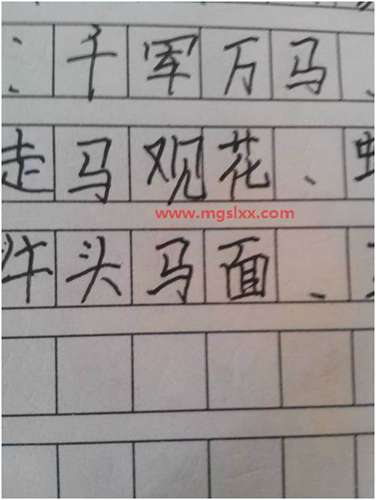 ：千军万马、
走马观花、
www.mgslxx.com
牛头马面、